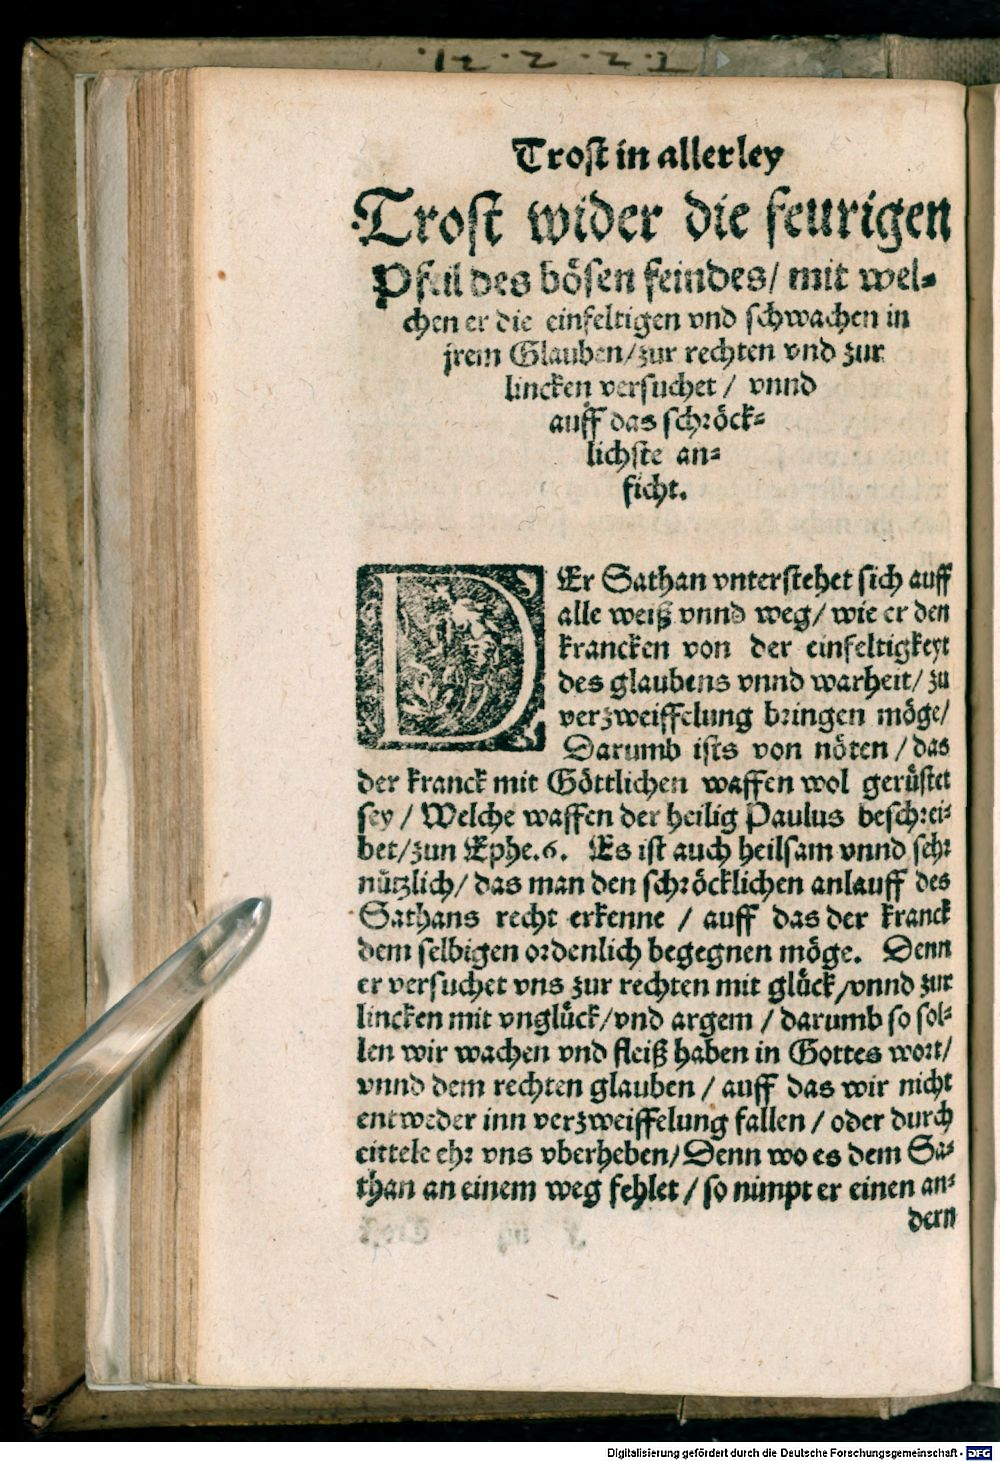 Trost in allerley
Trost wider die feurigen
Pfeil des bösen feindes/ mit wel⸗
chen er die einfeltigen vnd schwachen in
jrem Glauben/zur rechten vnd zur
lincken versuchet / vnnd
auff das schröck⸗
lichste an⸗
ficht.
DEr Sathan vnterstehet sich auff
alle weiß vnnd weg/ wie er den
krancken von der einfeltigkeyt
des glaubens vnnd warheit/ zu
verzweiffelung bringen möge/
Darumb ists von nöten / das
der kranck mit Göttlichen waffen wol gerüstet
sey / Welche waffen der heilig Paulus beschrei⸗
bet/zun Ephe.6. Es ist auch heilsam vnnd sehr
nützlich/ das man den schröcklichen anlauff des
Sathans recht erkenne / auff das der kranck
dem selbigen ordenlich begegnen möge. Denn
er versuchet vns zur rechten mit glück/vnnd zur
lincken mit vnglück/vnd argem / darumb so sol⸗
len wir wachen vnd fleiß haben in Gottes wort/
vnnd dem rechten glauben / auff das wir nicht
entweder inn verzweiffelung fallen / oder durch
eittele ehr vns vberheben/Denn wo es dem Sa⸗
than an einem weg fehlet / so nimpt er einen an⸗
dern
Digitalisierung gefördert durch die Deutsche Forschungsgemeinschaft - DFG